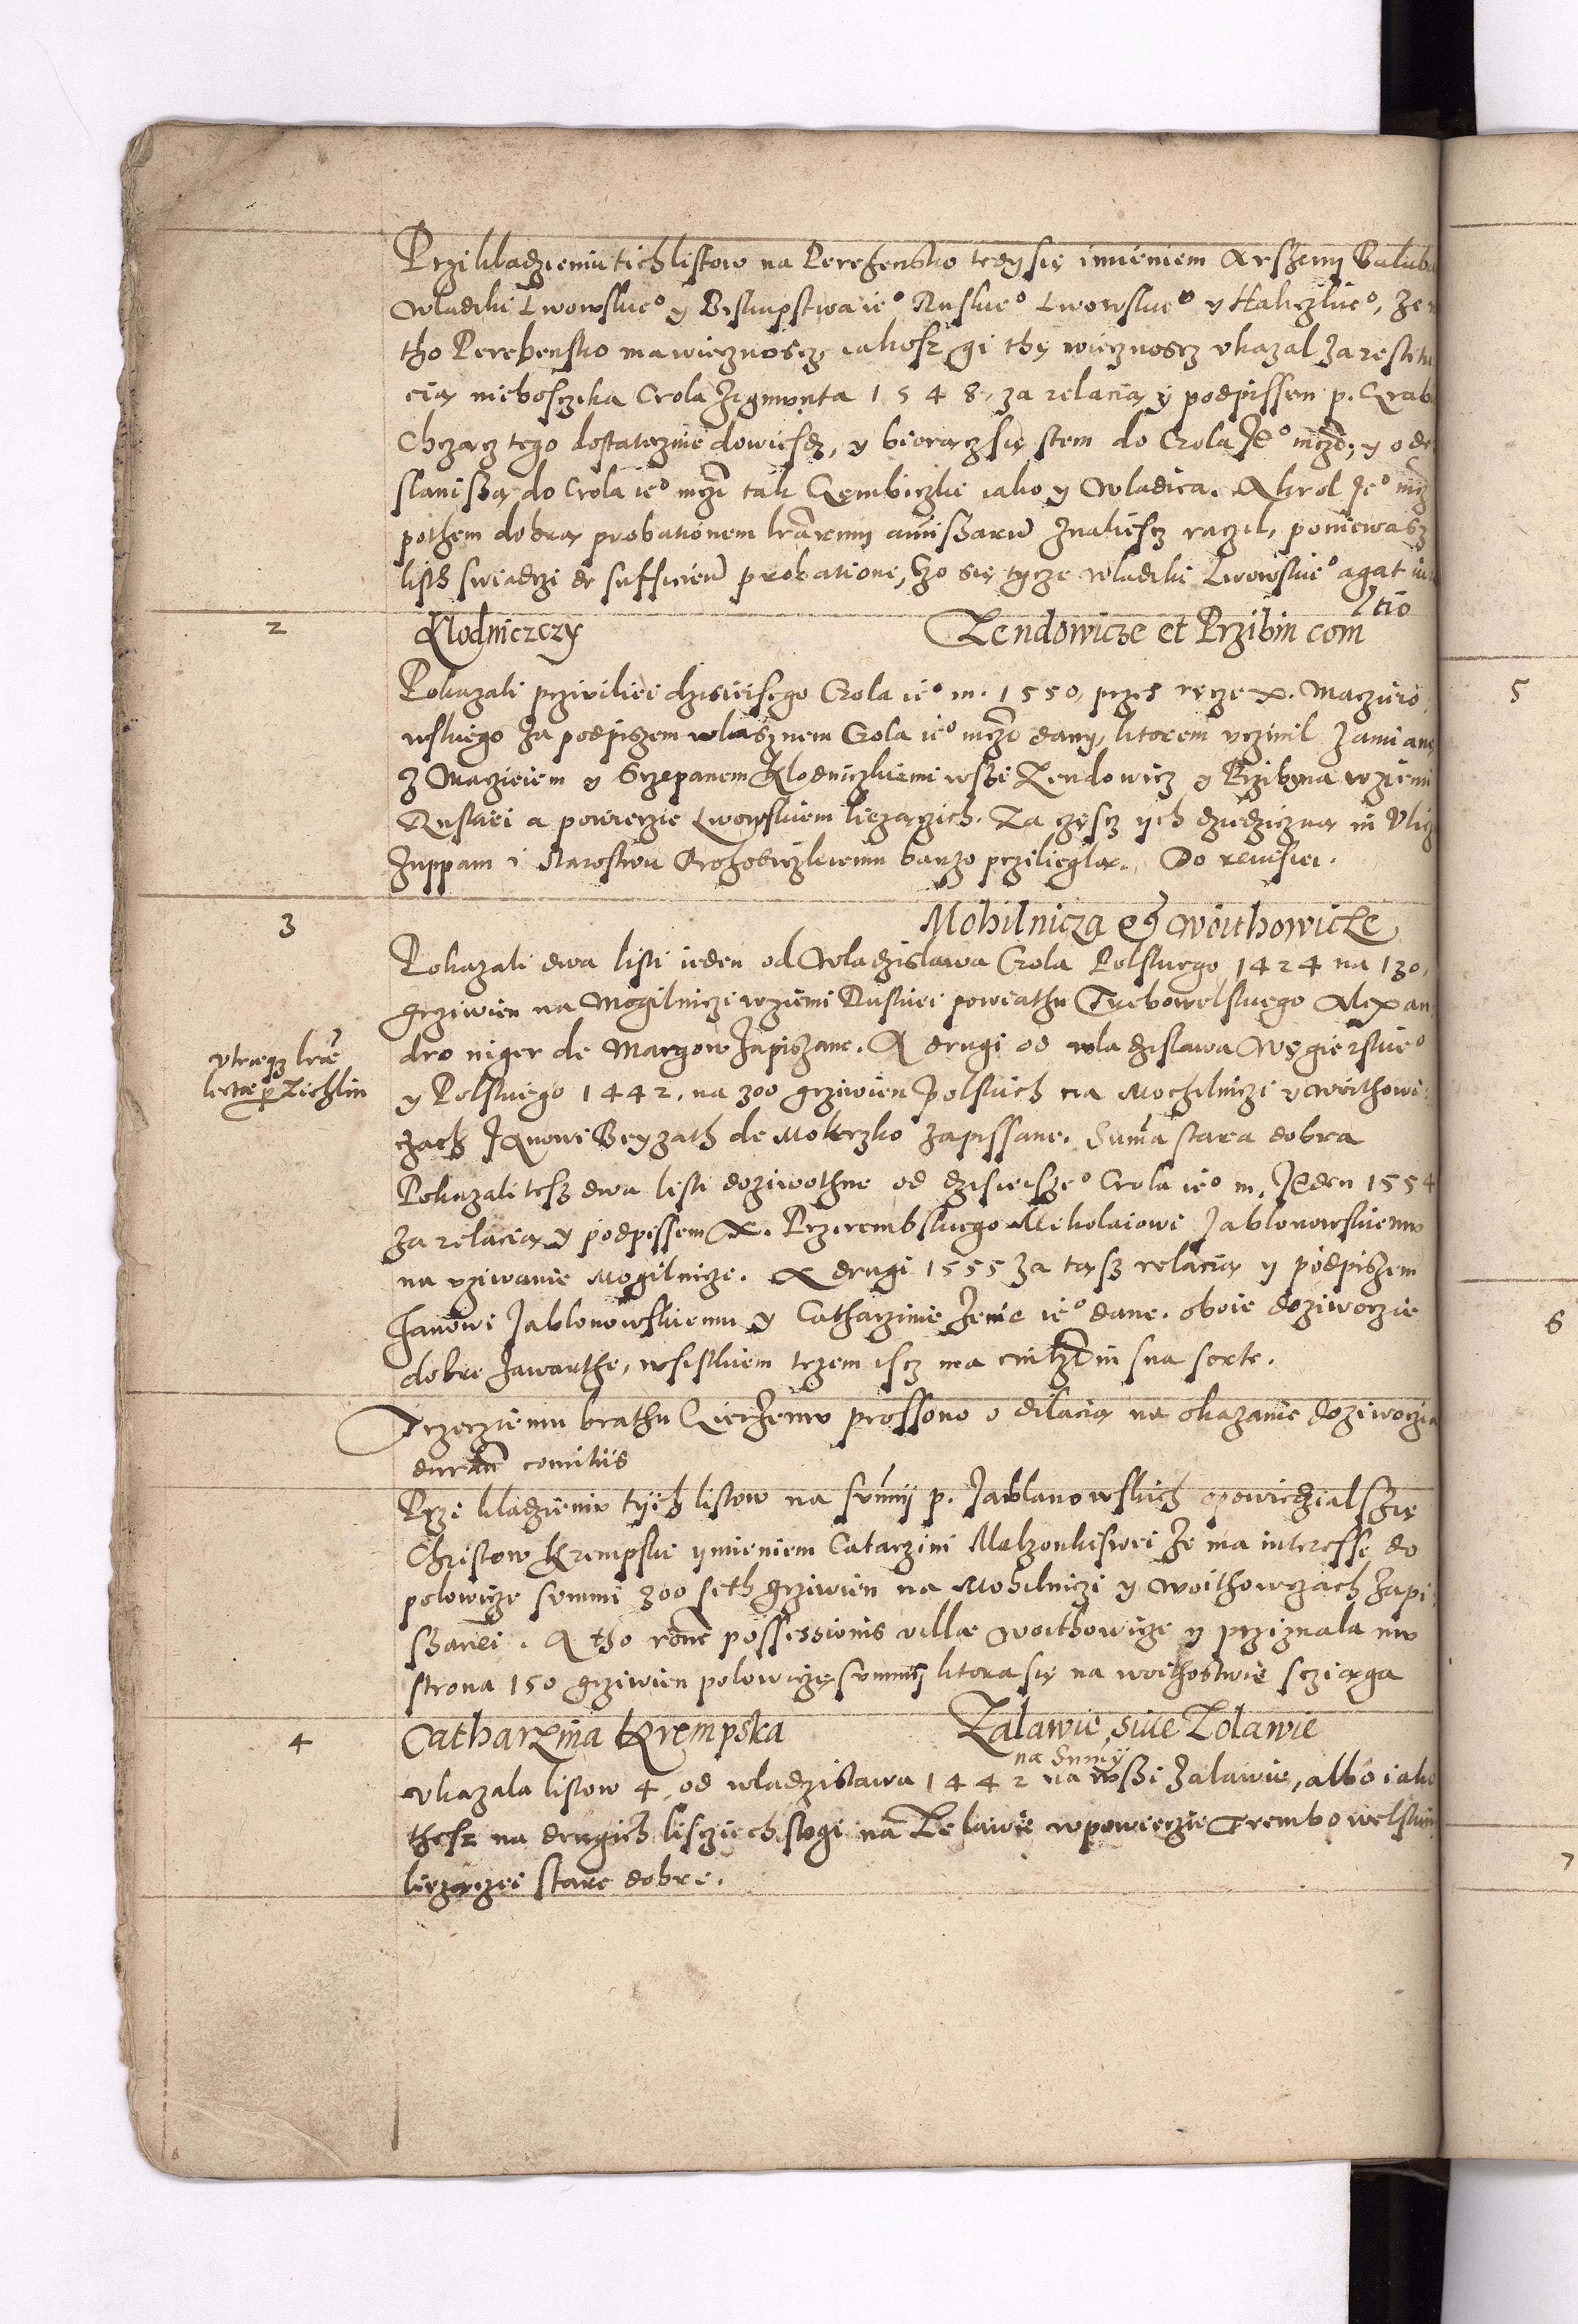 Przi kladzieniu tich listow na Perehensko tedy się imieniem Arszenij Balaba
Wladiki Lwowskie° y Biskupstwa ie° Ruskie° Lwowskie° y Haliczkie°, ze
tho Perehensko ma wiecznoscz, iakosz gi thę wiecznoscz ukazal za restitu
cią nieboszczika Crola Zigmunta 1548, za relacią y podpissem p. Crab
Chcząc tego dostatecznie dowiesdz, y biorącz się stem do Crola Je° mczi, y ode
slani są do Crola ie° mczi tak Czembiczki iako y Wladica. A krol Je° mcz
pothem dobrą probationem lrarum amissarum znaliescz raczil, poniewasz
listh swiadczi de sufficien probatione, Czo się tycze wladiki Lwowskie° agat iure
2 Klodniczczy Zendowicze et Przibin com
tio
Pokazali prziviliei dzisieisego Crola ie° m. 1550, przes ręcze X. Maczieio
wskiego za podpiszem wlasznem Crola ie° mczi dany, ktorem uczinil zamianę
Z Maczieiem y Sczepanem Klodniczkiemi wsi Zendowicz y Przibyna wziemi
Ruskiei a powieczie Lwowskiem liezączich. Za częscz ych dziedziczną in Ulicz
Zuppam i starostwu Drohobiczkiemu barzo przilieglą. Do revisiei.
3 Mohilnicza et Woithowicze
Pokazali dwa listi ieden od Wladzislawa Crola Polskiego 1424 na 130,
grziwien na Mogilniczi wziemi Ruskiei powiathu Trebowelskiego Alexan
utraeqz lrae
lectae per Zichlin
dro niger de Margow zapiszane. A drugi od wladzislawa Węgierskie°
y Polskiego 1442. na 300 grziwien Polskich na Mochilniczi y woithowi
czach Janowi Beyzath de Mokrzko zapissane. Suma stara dobra
Pokazali tesz dwa listi dozywothne od dzisieisze° Crola ie° m. Jeden 1554
za relacią y podpissem X. Przerembskiego Mikolaiowi Jablonowskiemu
na uziwanie Mogilnicze. A drugi 1555 za tąsz relacią y podpiszem
Janowi Jablonowskiemu y Catharzinie zenie ie° dane. oboie doziwoczie
dobre zawarthe, wsistkiem trzem iscz ma in sua sorte.
Trzecziemu brathu Gierzemu prossono o dilacią na okazanie doziwoczia
duran comitiis
Przi kladzieniu tych listow na summy p. Jablanowskich opowiedzial szię
Christow Krempski ymieniem Catarzini Malzonki swei ze ma interesse do
polowicze summi 300 seth grziwien na Mohilniczi y Woithowczach zapi
szanei. A tho rone possessionis villae Woithowicze y prziznala mu
strona 150 grziwien polowiczę summy ktora się na woithostwie scziąga
4 Catharzina Krempska Zalawie, siue Zolawie
na Sumy
Ukazala listow 4, od wladzislawa 1442 na wsi Zalawie, albo iako
thesz na drugich lisciech stogi na Zelawie wpowieczie Trembowelskim
liezączei stare dobre.
5
6
7